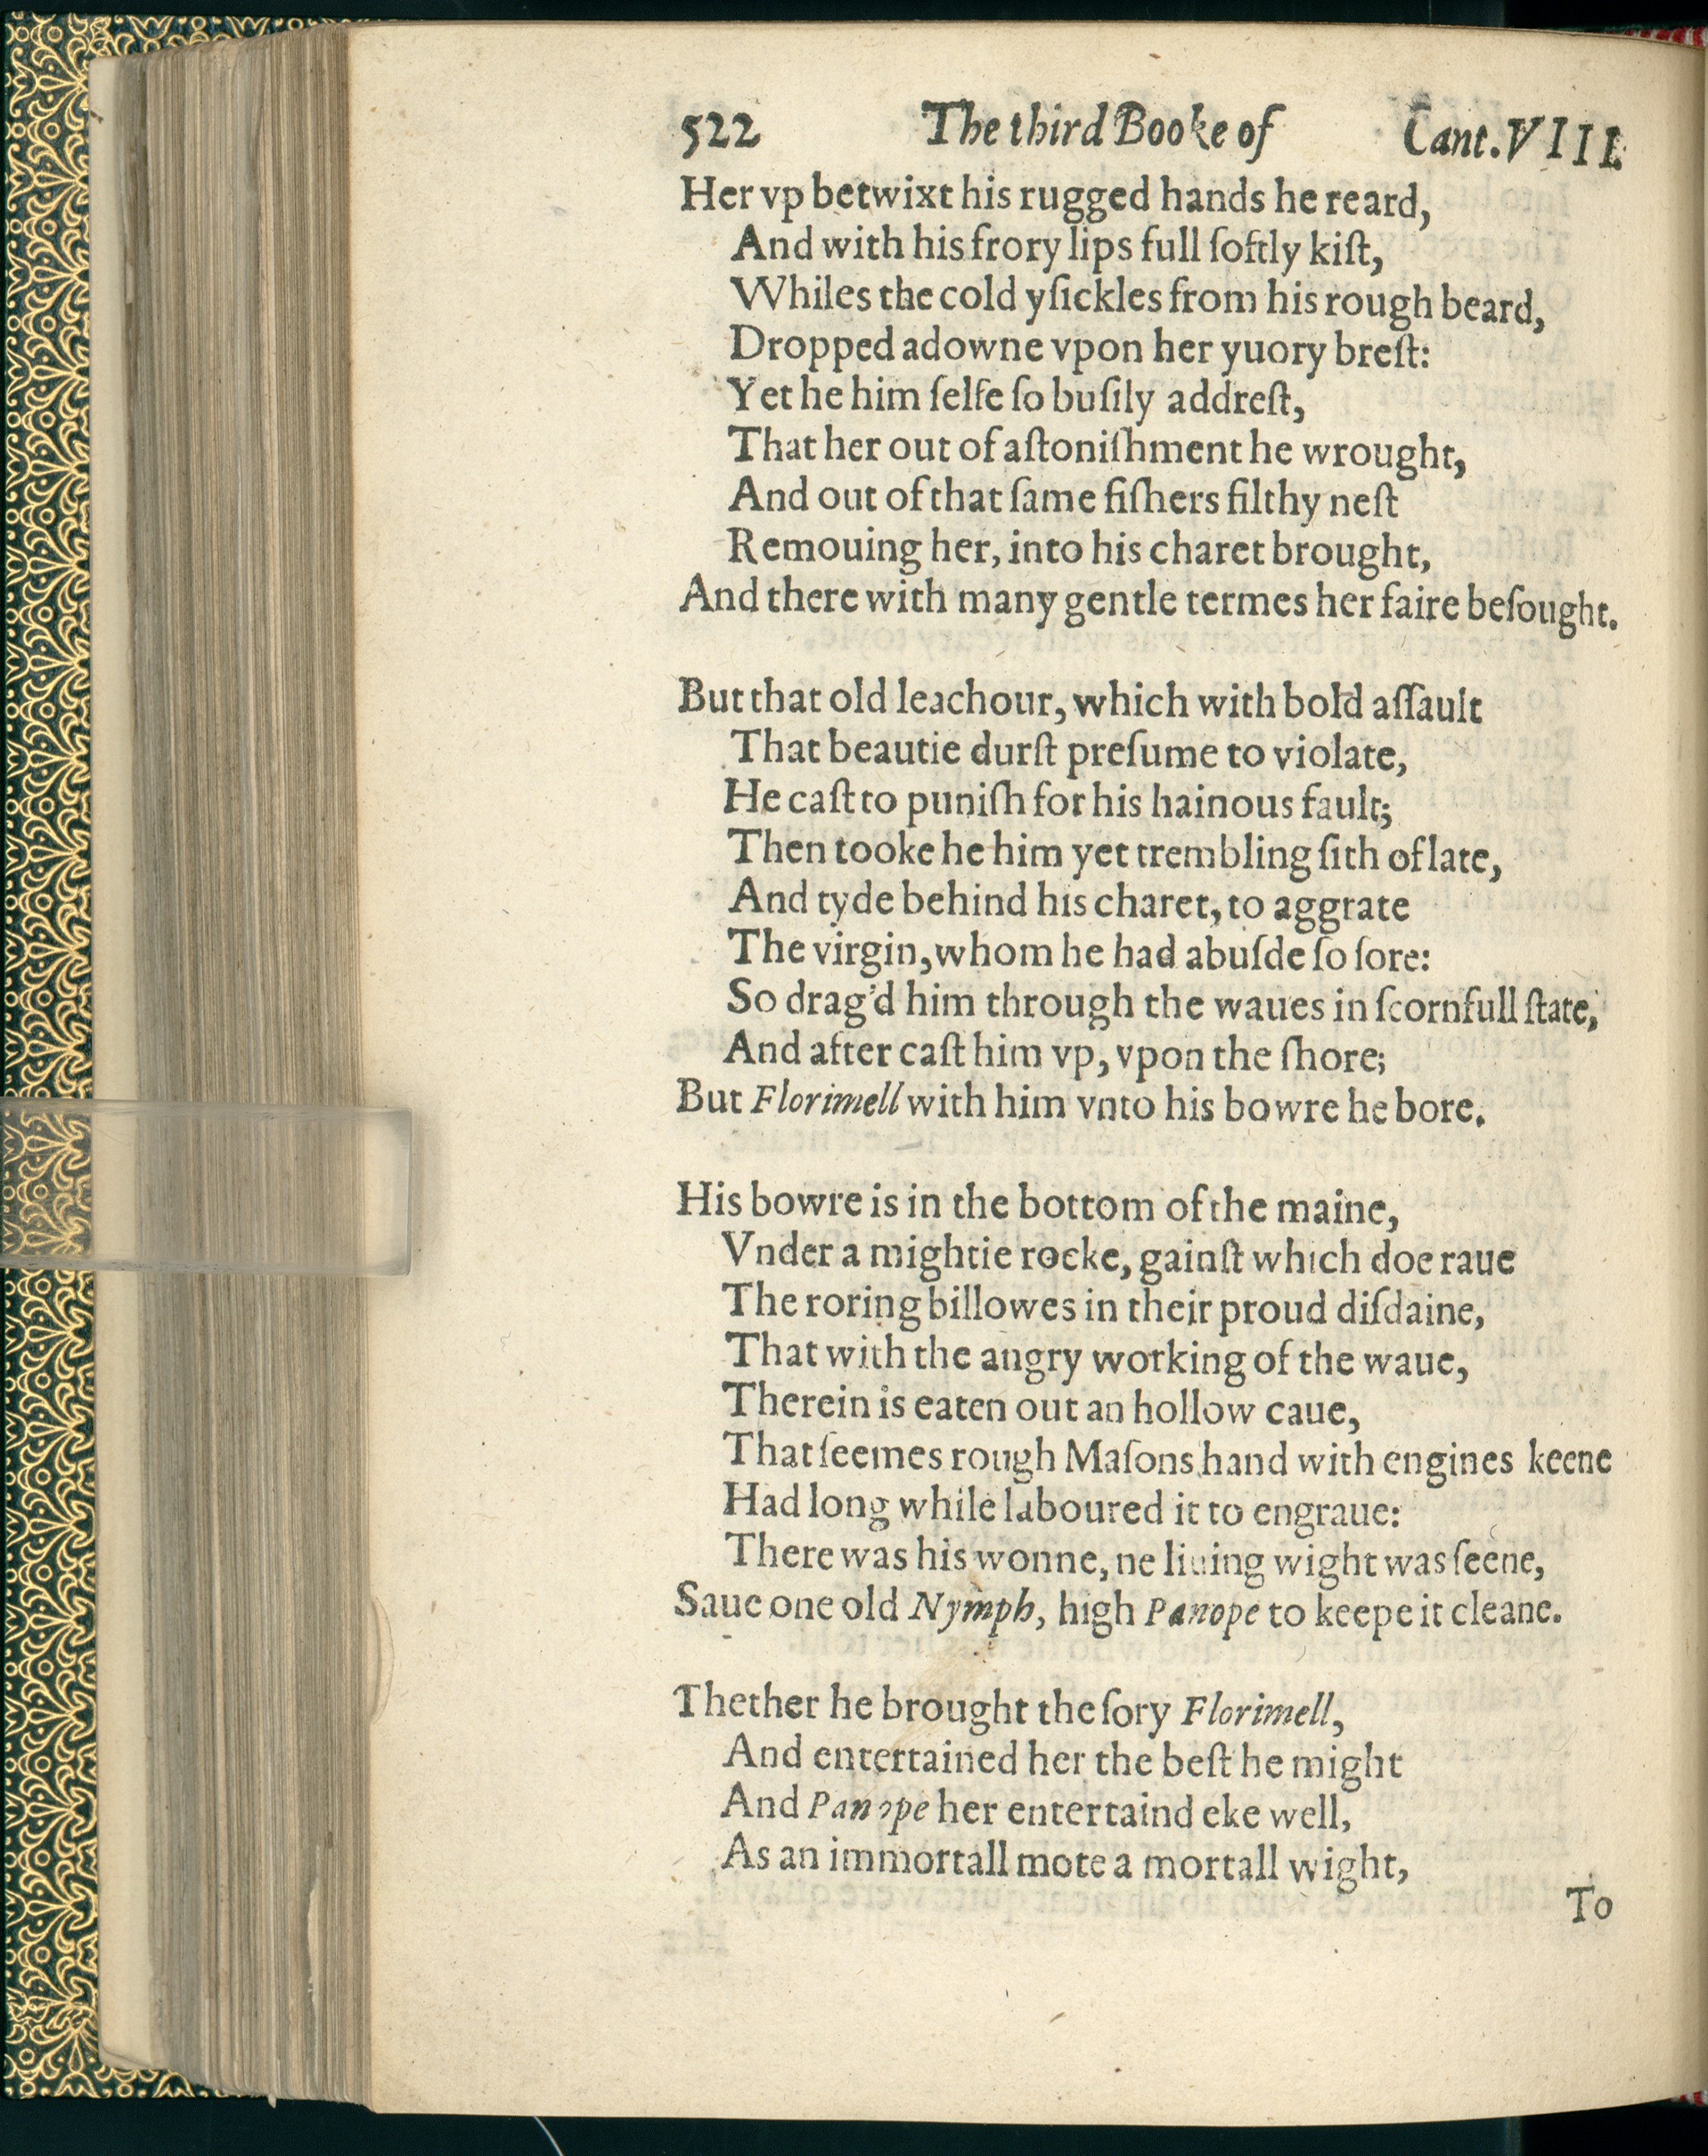 522 The third Booke of Cant. VIII.
Her vp betwixt his rugged hands he reard,
And with his frory lips full ſoftly kiſt,
Whiles the cold yſickles from his rough beard,
Dropped adowne vpon her yuory breſt:
Yet he him ſelfe ſo buſily addreſt,
That her out of aſtoniſhment he wrought,
And out of that ſame fiſhers filthy neſt
Remouing her, into his charet brought,
And there with many gentle termes her faire beſought.
But that old leachour, which with bold aſſault
That beautie durſt preſume to violate,
He caſt to puniſh for his hainous fault;
Then tooke he him yet trembling ſith of late,
And tyde behind his charet, to aggrate
The virgin, whom he had abuſde ſo ſore:
So drag'd him through the waues in ſcornfull ſtate,
And after caſt him vp, vpon the ſhore;
But Florimell with him vnto his bowre he bore.
His bowre is in the bottom of the maine,
Vnder a mightie rocke, gainſt which doe raue
The roring billowes in their proud diſdaine,
That with the angry working of the waue,
Therein is eaten out an hollow caue,
That ſeemes rough Maſons hand with engines keene
Had long while laboured it to engraue:
There was his wonne, ne liuing wight was ſeene,
Saue one old Nymph, high Panope to keepe it cleane.
Thether he brought the ſory Florimell,
And entertained her the beſt he might
And Panope her entertaind eke well,
As an immortall mote a mortall wight,
To